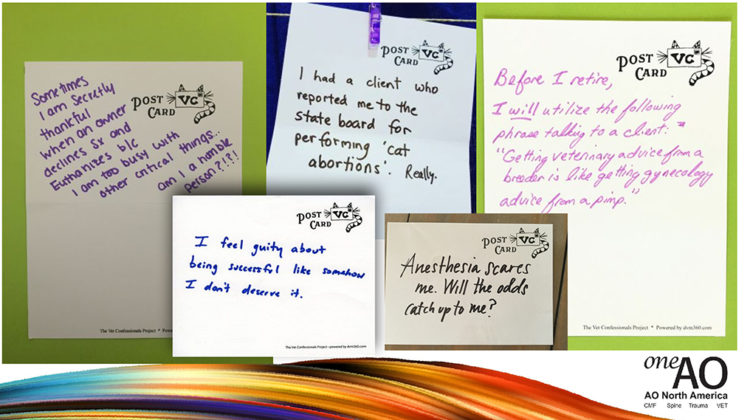 POST
CARD
VC
Sometimes
I am secretly
thankful
when an owner
declines Sx and
Euthanizes b/c
I am too busy with
other critical things...
am I a horrible
person?!?!
The Vet Confessionals Project * Powered by dvm360.com
POST
CARD
VC
I had a client who
reported me to the
state board for
performing 'cat
abortions'. Really.
POST
CARD
VC
Before I retire,
I will utilize the following
phrase talking to a client:
"Getting veterinary advice from a
breeder is like getting gynecology
advice from a pimp."
The Vet Confessionals Project * Powered by dvm360.com
POST
CARD
VC
I feel guity about
being successful like somehow
I don't deserve it.
The Vet Confessionals Project - powered by dvm360.com
POST
CARD
VC
Anesthesia scares
me. Will the odds
catch up to me?
one AO
AO North America
CMF Spine Trauma VET